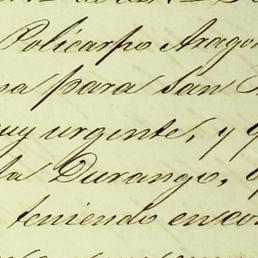 Policarpo Arago
na para san
uy urgente, y q
ta Durango,
teniendo en con